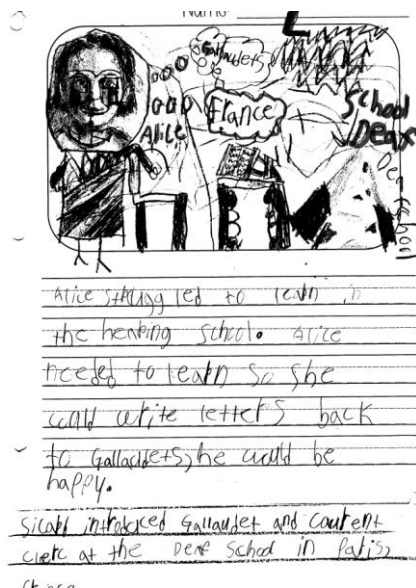 Name
Gallaudets
Alice
France
School
Deaf
Alice struggled to learn in
the hearing school. Alice
needed to learn so she
could write letters back
to Gallaudets, he would be
happy.
Sicard introduced Gallaudet and Laurent
Clerc at the Deaf School in Paris,